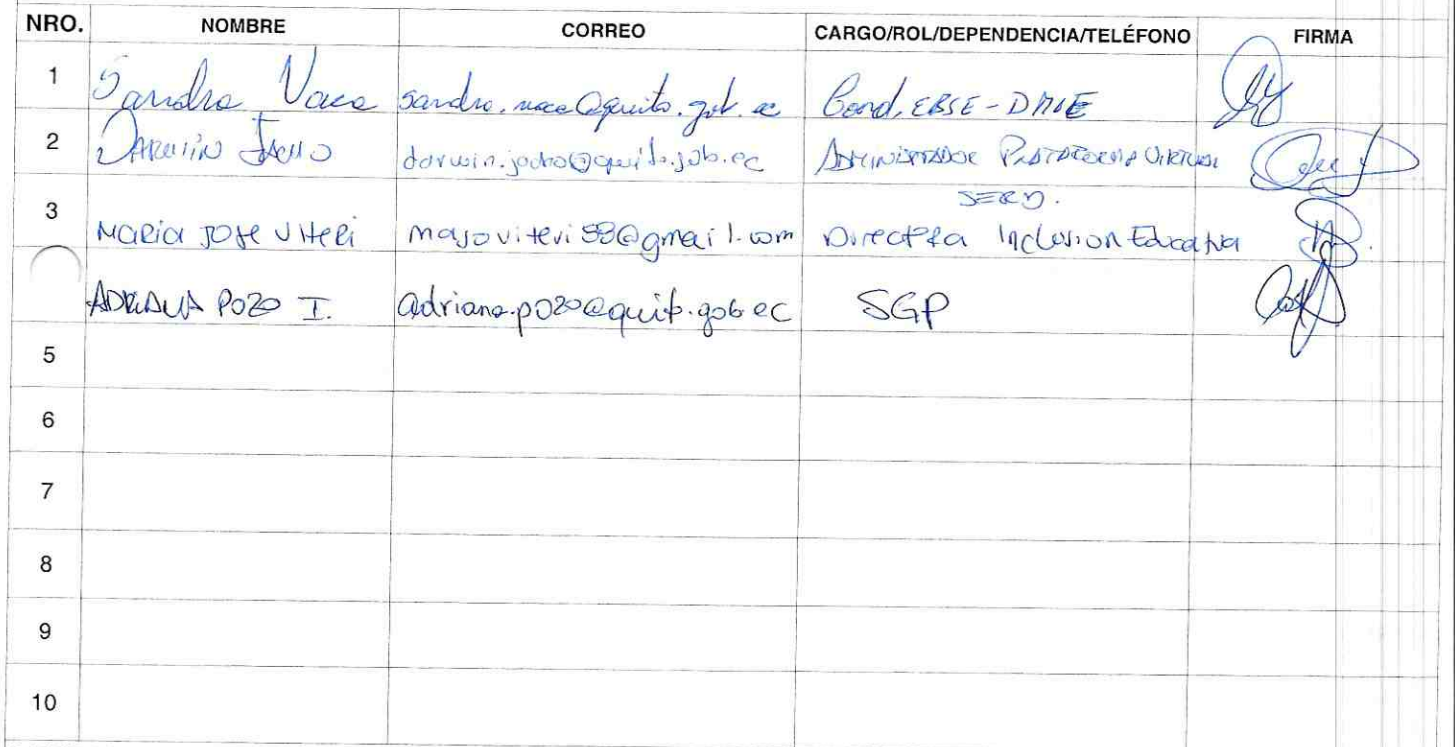 NRO. NOMBRE CORREO CARGO/ROL/DEPENDENCIA/TELÉFONO FIRMA
1 Sandra Vaca sandra.vaca@quito.gob.ec Coord, EBSE-DMIE
2 DARWIN JACHO darwin.jacho@quito.gob.ec ADMINISTRADOR PLATAFORMA VIRTUAL
SERD.
3 MARIA JOSE VITERI majoviteri53@gmail.com Directora Inclusion Educativa
ADRIANA POZO I. adriana.pozo@quito.gob.ec SGP
5
6
7
8
9
10